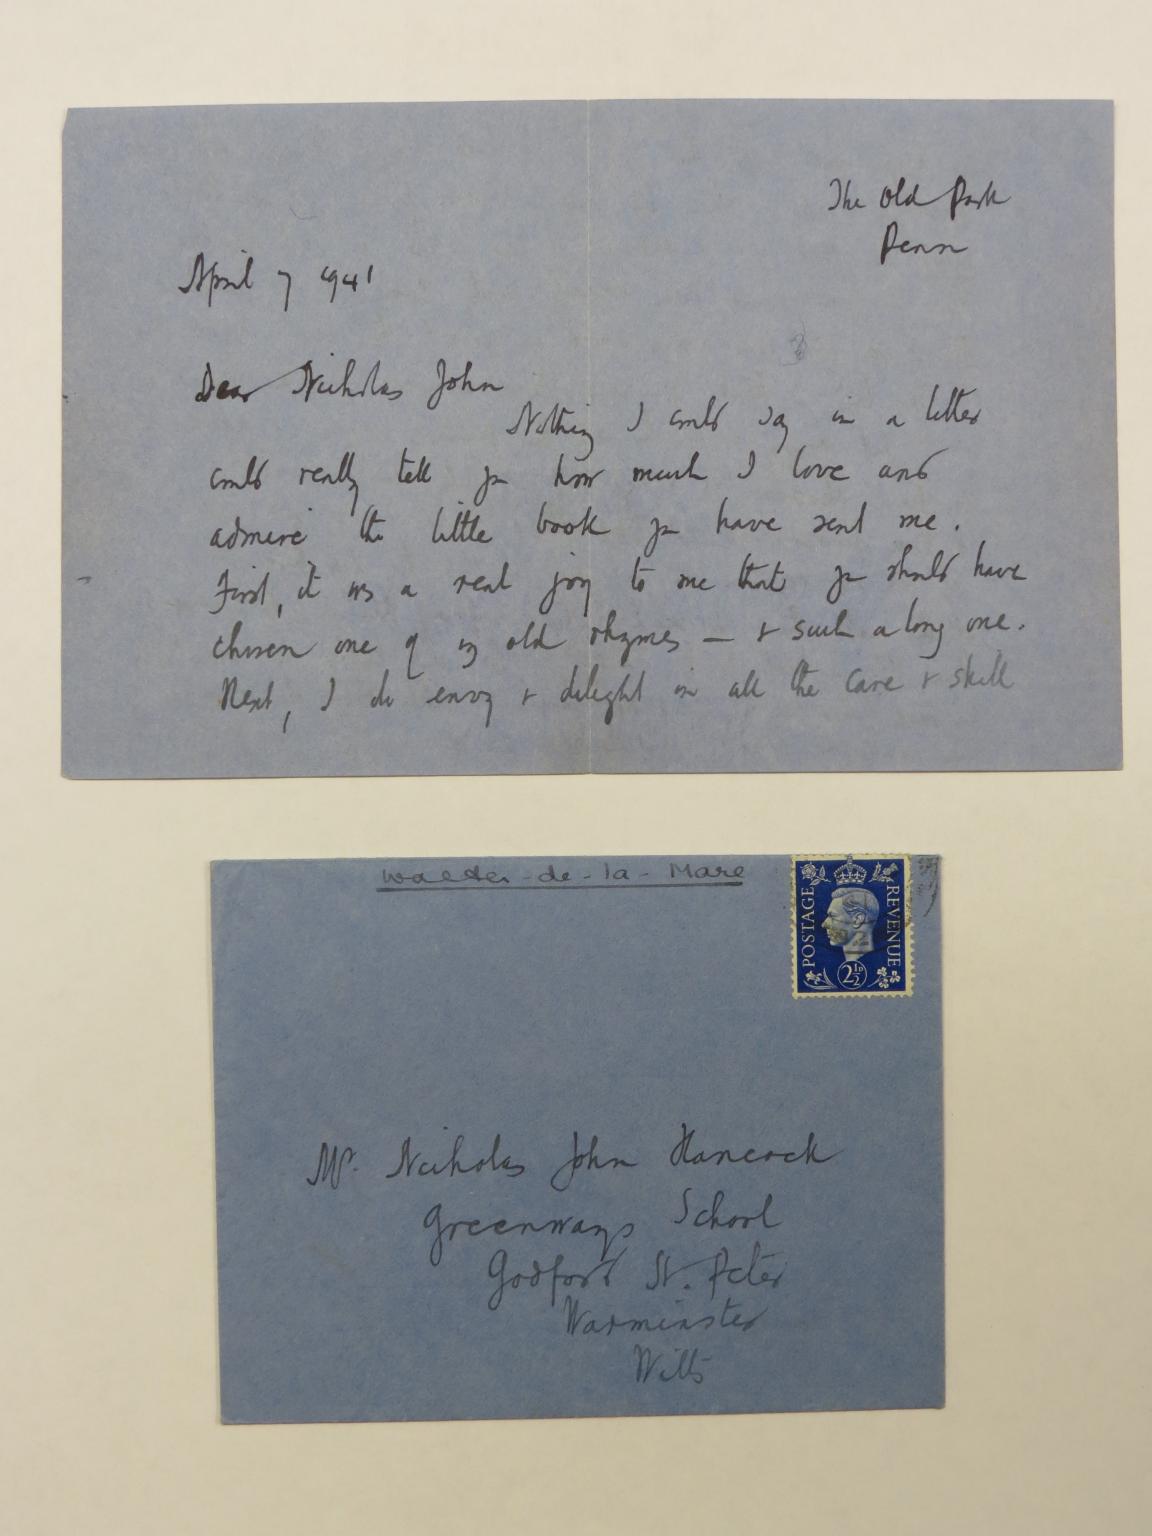 The Old Park
Penn
April 7 1941
Dear Nicholas John
Nothing I could say in a letter
could really tell you how much I love and
admire the little book you have sent me.
First, it was a real joy to me that you should have
chosen one of my old rhymes — & such a long one.
Next, I do envy & delight in all the care & skill
Walter-de-la-Mare
POSTAGE
REVENUE
2½D
Mr. Nicholas John Hancock
Greenways School
Godford St. Peter
Warminster
Wilts